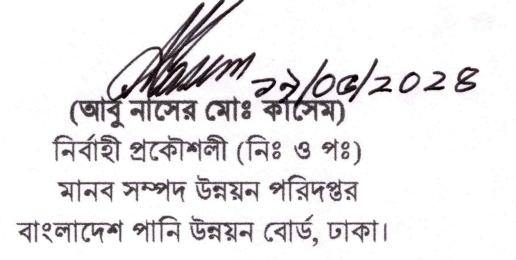 ২১/০৫/২০২৪
(আবু নাসের মোঃ কাসেম)
নির্বাহী প্রকৌশলী (নিঃ ও পঃ)
মানব সম্পদ উন্নয়ন পরিদপ্তর
বাংলাদেশ পানি উন্নয়ন বোর্ড, ঢাকা।